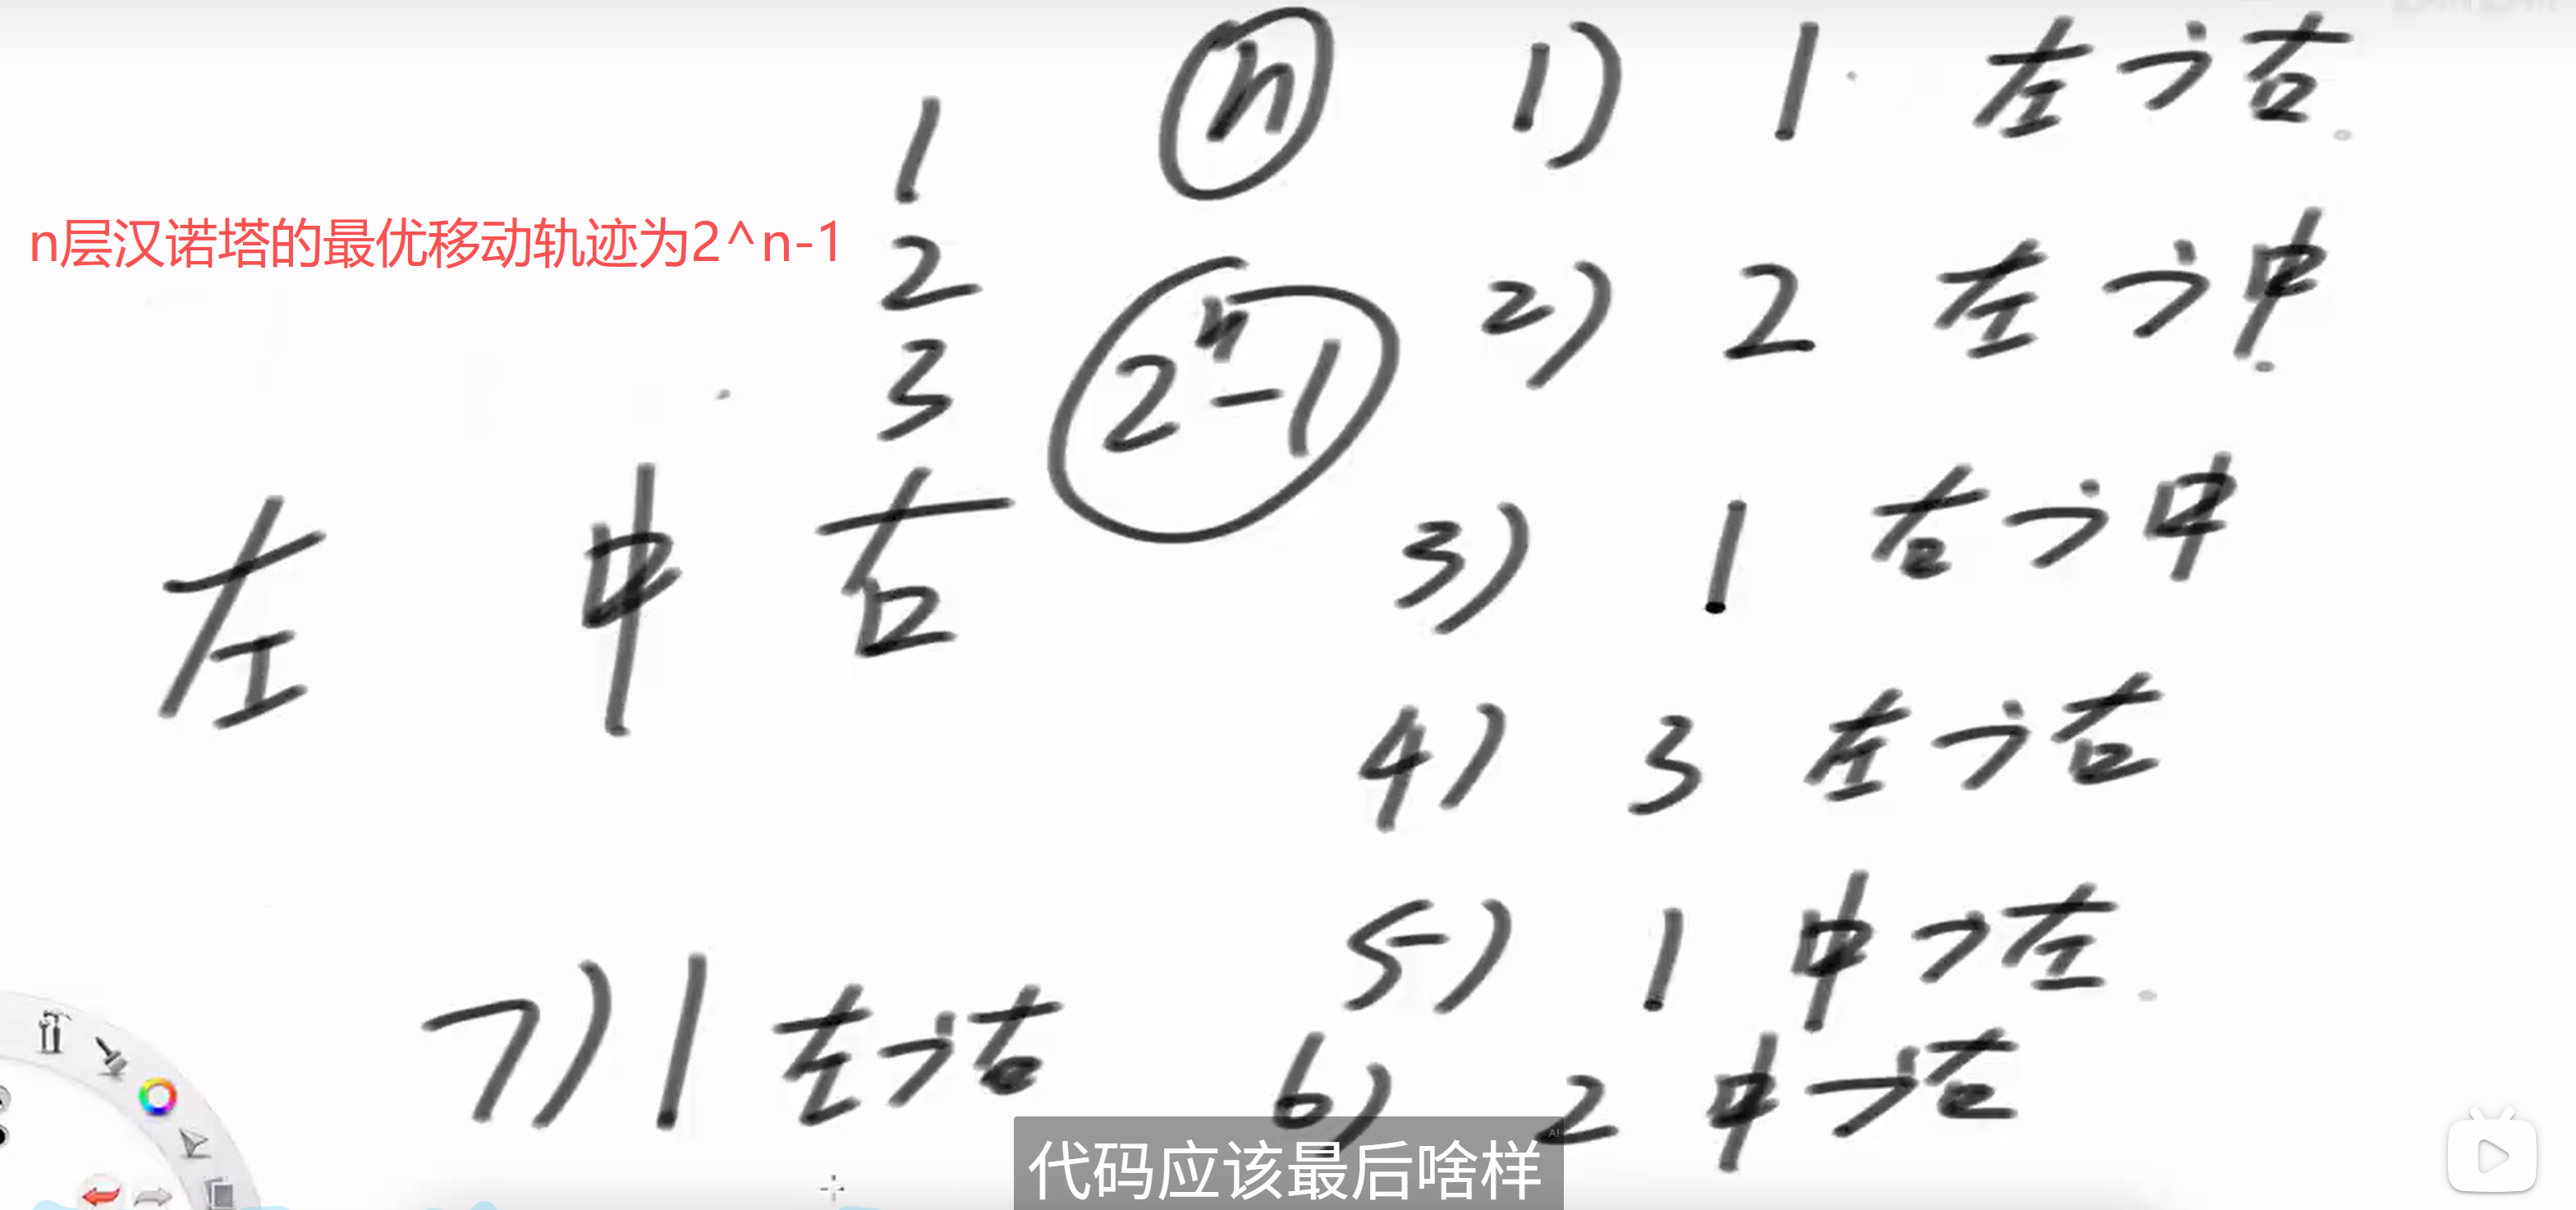 n层汉诺塔的最优移动轨迹为2^n-1
1
2
3
左 中 右
n
2^n-1
1) 1 左->右
2) 2 左->中
3) 1 右->中
4) 3 左->右
5) 1 中->左
6) 2 中->右
7) 1 左->右
代码应该最后啥样
AI